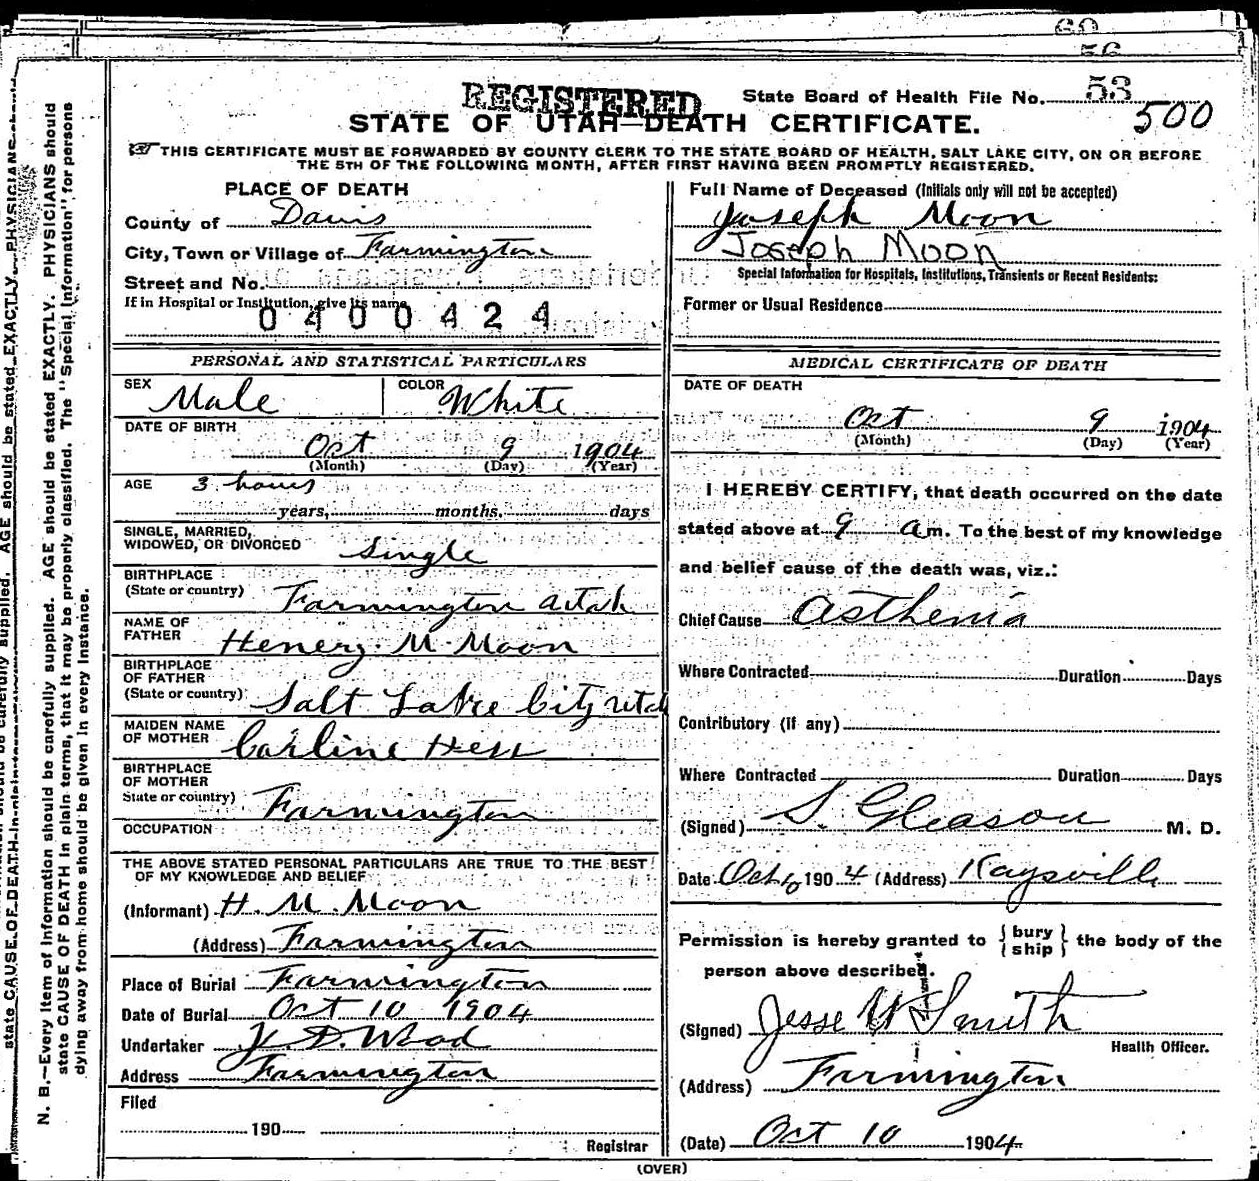 60
56
53
REGISTERED
State Board of Health File No. 500
STATE OF UTAH—DEATH CERTIFICATE.
THIS CERTIFICATE MUST BE FORWARDED BY COUNTY CLERK TO THE STATE BOARD OF HEALTH, SALT LAKE CITY, ON OR BEFORE
THE 5TH OF THE FOLLOWING MONTH, AFTER FIRST HAVING BEEN PROMPTLY REGISTERED.
PLACE OF DEATH
County of Davis
City, Town or Village of Farmington
Street and No.
If in Hospital or Institution, give its name
0400424
Full Name of Deceased (Initials only will not be accepted)
Joseph Moon
Joseph Moon
Special Information for Hospitals, Institutions, Transients or Recent Residents:
Former or Usual Residence
PERSONAL AND STATISTICAL PARTICULARS
SEX Male COLOR White
DATE OF BIRTH
Oct 9 1904
(Month) (Day) (Year)
AGE 3 hours
years, months, days
SINGLE, MARRIED,
WIDOWED, OR DIVORCED Single
BIRTHPLACE
(State or country) Farmington Utah
NAME OF
FATHER Henery M Moon
BIRTHPLACE
OF FATHER
(State or country) Salt Lake City Utah
MAIDEN NAME
OF MOTHER Carline Hess
BIRTHPLACE
OF MOTHER
State or country) Farmington
OCCUPATION
THE ABOVE STATED PERSONAL PARTICULARS ARE TRUE TO THE BEST
OF MY KNOWLEDGE AND BELIEF
(Informant) H. M. Moon
(Address) Farmington
Place of Burial Farmington
Date of Burial Oct 10 1904
Undertaker D. Wood
Address Farmington
Filed
190
Registrar
MEDICAL CERTIFICATE OF DEATH
DATE OF DEATH
Oct 9 1904
(Month) (Day) (Year)
I HEREBY CERTIFY, that death occurred on the date
stated above at 9 a m. To the best of my knowledge
and belief cause of the death was, viz.:
Chief Cause Asthenia
Where Contracted Duration Days
Contributory (if any)
Where Contracted Duration Days
(Signed) S. Gleason M. D.
Date Oct 10 1904 (Address) Kaysville
Permission is hereby granted to { bury ship } the body of the
person above described.
(Signed) Jesse Smith
Health Officer.
(Address) Farmington
(Date) Oct 10 1904
(OVER)
N. B.—Every item of information should be carefully supplied. AGE should be stated EXACTLY. PHYSICIANS should
state CAUSE OF DEATH in plain terms, that it may be properly classified. The "Special Information" for persons
dying away from home should be given in every instance.